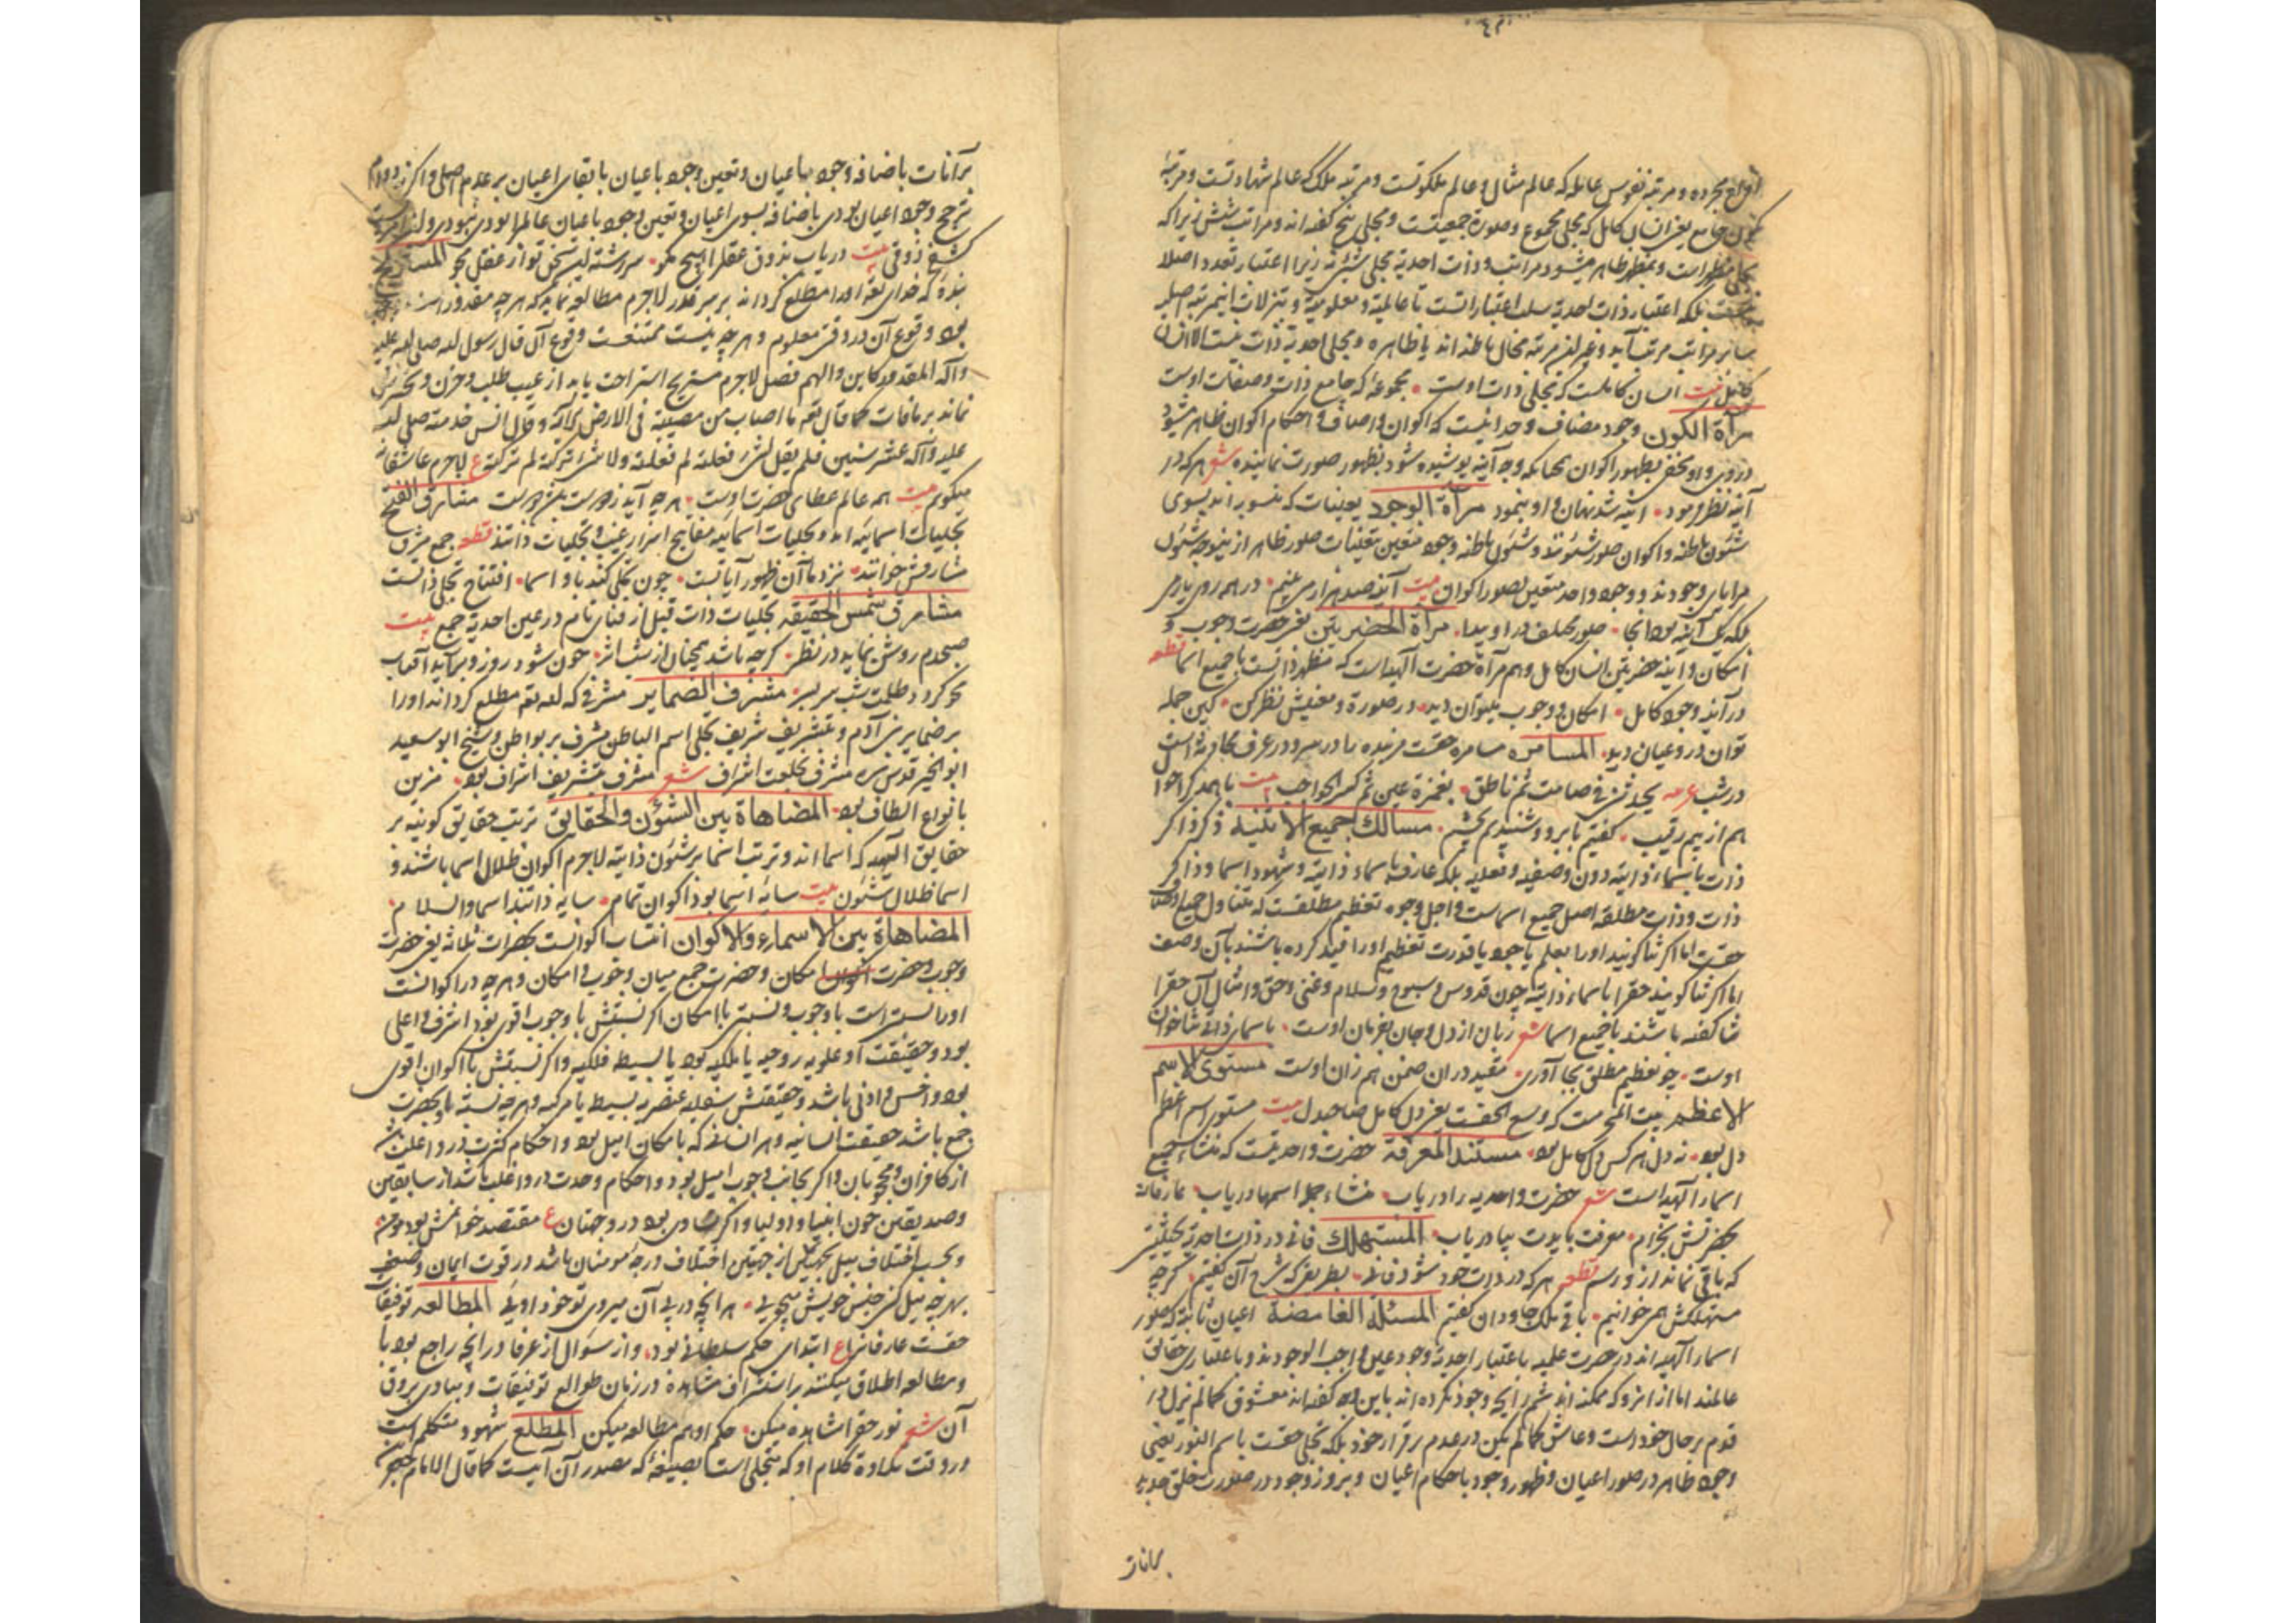 ارواح مجرده و مرتبه نفوس عامله که عالم مثال و عالم ملکوتست و مرتبه ملک که عالم شهادتست و مرتبه
کون جامع یعنی انسان کامل که مجلی مجموع و صورة جمعیتست و مجلی پنج گفته اند و مراتب شش زیرا که
مجلی مظهر است و بمظهر ظاهر میشود مراتب و ذات احدیه مجلی شیئ نه زیرا اعتبار تعدد اصلا
نیست بلکه اعتبار ذات احدیه سلب اعتباراتست تا عالمیة و معلومیة و تنزلات اینمرتبه اصلیه
سایر مراتب مرتب آید و غیر این مرتبه مجال باطنه اند یا ظاهره و مجلی احدیه ذات نیست الا انسان
کامل بیت انسان کاملست که مجلی ذات اوست • مجموعهٔ که جامع ذات و صفات اوست
مرآة الکون وجود مضاف وحدانیست که اکوان و اوصاف و احکام اکوان ظاهر میشود
دروی و او مخفی بظهور اکوان همچنانکه وجه آینه پوشیده شود بظهور صورت نماینده شعر هر که در
آینه نظر فرمود • آینه شد نهان و او بنمود مرآة الوجود تعینات که منسوب اند بسوی
شئون باطنه و اکوان صور شئونند و شئون باطنه وجود متعین بتعینات صور ظاهر ازینوجه شئون
مرایای وجودند و وجود واحد متعین بصور اکوان بیت آینه صد هزار می بینم • در همه روی یار می
بلکه یک آینه بود اینجا • صور مختلف در او پیدا • مرآة الحضرتین یعنی حضرت وجوب و
امکان و آینه حضرتین انسان کامل و هم مرآة حضرت آلهیه است که مظهر ذاتست با جمیع اسما قطعه
در آینه وجود کامل • امکان و وجوب میتوان دید • در صورة و معنیش نظر کن • کین جمله
توان درو عیان دید • المسامره مسامره حقست مر بنده را در سر و در عرف محادثه است
در شب عربیه یحدثنی فی صامت ثم ناطق • بغمزة عین ثم کسر الحواجب بیت با همدگر احوا
هم از بیم رقیب • گفتیم بابرو و شنیدیم بچشم • مسالک جمیع الاثنیه ذکر ذاکر
ذات باسماء ذاتیه دون وصفیه و فعلیه بلکه عارف باسماء ذاتیه و شهود اسما و ذاکر
ذات و ذات مطلقه اصل جمیع اسماست و اجل وجوه تعظیم مطلقست که متناول جمیع اوصاف
حقست اما اگر ثنا گویند او را بعلم یا جود یا قدرت تعظیم او را قید کرده باشند بآن وصف
اما اگر ثنا گویند حق را باسماء ذاتیه چون قدوس و سبوح و سلام و غنی و حق و امثال آن حق را
ثنا گفته باشند بجمیع اسما شعر زبان از دل و جان بفرمان اوست • باسمای ذاتی ثنا خوان
اوست • چو تعظیم مطلق بجا آوری • مقید در ان ضمن هم زان اوست مستوی الاسم
الاعظم بیت المحرمست که وسع الحقست یعنی دل کامل صاحبدل بیت مستوی اسم اعظم
دل بود • نه دل هر کس دل کامل بود • مستند المعرفة حضرت واحدیتست که منشاء جمیع
اسماء آلهیه است شعر حضرت واحدیه را دریاب • منشاء جمله اسمها دریاب • عارفانه
بحضرتش بخرام • معرفت بایدت بیا دریاب • المستهلک فانی در ذات احدیه بحیثیتی
که باقی نماند از و رسم قطعه هر که در ذات خود شود فانی • بطریقی که شرح آن گفتیم • گرچه
مستهلکش همی خوانیم • باقی ملک جاودان گفتیم المسئلة الغامضة اعیان ثابته که صور
اسماء آلهیه اند در حضرت علمیه باعتبار احدیه وجود عین واجب الوجودند و باعتباری حقایق
عالمند اما از انرو که ممکنه اند شم رایحه وجود نکرده اند باین وجه گفته اند معشوق کما لم یزل در
قدم بر حال خود است و عاشق کما لم یکن در عدم برقرار خود بلکه تجلی حقست باسم النور یعنی
وجود ظاهر در صور اعیان و ظهور وجود باحکام اعیان و بروز وجود در صورت خلق جدید
برآنات
برآنات باضافه وجود باعیان و تعین وجود باعیان با بقای اعیان بر عدم اصلی و اگر نه دوام
ترجح وجود اعیان بودی باضافه بسوی اعیان و تعین وجود باعیان عالم را بودی نبودی و این امریست
کشفی ذوقی بیت دریاب بذوق عقل را هیچ مگو • سررشته این سخن تو از عقل مجو المستریح
بندهٔ که خدای تعه او را مطلع گردانه بر سر قدر لاجرم مطالعه نماید که هر چه مقدور است
بود وقوع آن در وقتی معلوم و هر چه نیست ممتنعست وقوع آن قال رسول لله صلی الله علیه
وآله المقدور کاین والهم فضل لاجرم مستریح استراحت یابد از عیب طلب و حزن و تحسر
نماند بر مافات کما قال تعه ما اصاب من مصیبة فی الارض الآیه و قال انس خدمته صلی لله
علیه وآله عشر سنین فلم یقل لشئ فعلته لم فعلته ولا لشئ ترکته لم ترکته ع لاجرم عاشقانه
میگویم بیت همه عالم عطای حضرت اوست • هر چه آید ز دوست بمن دوست مشارق الفتح
تجلیات اسمائیه اند و تجلیات اسمائیه مفاتیح اسرار غیب و تجلیات ذاتند قطعه جمع مشرق
مشارقش خوانند • نزد ما آن ظهور آیاتست • چون تجلی کند باو اسما • افتتاح تجلی ذاتست
مشارق شمس الحقیقه تجلیات ذات قبل از فنای تام در عین احدیه جمع بیت
صبحدم روشن نماید در نظر • گرچه باشد همچنان از شب اثر • چون شود روز و برآید آفتاب
محو گردد ظلمت شب سر بسر • مشرف الضمایر مشرفی که لله تعه مطلع گرداند او را
بر ضمایر بنی آدم و بتشریف شریف تجلی اسم الباطن مشرف بر بواطن و شیخ ابو سعید
ابو الخیر قدس سره مشرف بخلعت اشراف شعر مشرف بتشریف اشراف بود • مزین
بانواع الطاف بود • المضاهاة بین الشئون والحقایق ترتب حقایق کونیه بر
حقایق آلهیه که اسما اند و ترتب اسما بر شئون ذاتیه لاجرم اکوان ظلال اسما باشند و
اسما ظلال شئون بیت سایه اسما بود اکوان تمام • سایه ذاتند اسما والسلام •
المضاهاة بین الاسماء والاکوان انتساب اکوانست بحضرات ثلاثه یعنی حضرت
وجوب و حضرت امکان و حضرت جمع میان وجوب و امکان و هر چه در اکوانست
او را نسبتی است باوجوب و نسبتی باامکان اگر نسبتش باوجوب اقوی بود اشرف و اعلی
بود و حقیقت او علویه روحیه یا ملکیه بود یا بسیطه فلکیه و اگر نسبتش باامکان اقوی
بود و اخس و ادنی باشد و حقیقتش سفلیه عنصریه بسیط یا مرکبه و هر چه نسبت باحضرت
جمع باشد حقیقت انسانیه و هر انسانی که بامکان امیل بود و احکام کثرت درو اغلب باشد
از کافران و محجوبان و اگر بجانب وجوب امیل بود و احکام وحدت درو اغلب باشد از سابقین
وصدیقین چون انبیا و اولیا و اگر متساوی بود در و جهتان ع مقتصد خوانمش بود مؤمن •
و بحسب اختلاف میل بجهتی از جهتین اختلاف درجه مؤمنان باشد در قوت ایمان و ضعف
بهر چه میل کنی جنس خویش میجویی • هر آنچه در پی آن میروی تو خود اویی المطالعه توفیقات
حقست عارفانرا ع ابتدای حکم سلطانی بود، و از سؤال از عرفا در آنچه راجع بود با
ومطالعه اطلاق میکنند بر استشراف مشاهده در زمان طوالع توفیقات و مبادی بروق
آن شعر نور حق را مشاهده میکن • حکم او هم مطالعه میکن المطلع شهود متکلم است
در وقت تلاوة کلام او که متجلی است بصیغهٔ که مصدر آن آیست کما قال الامام جعفر